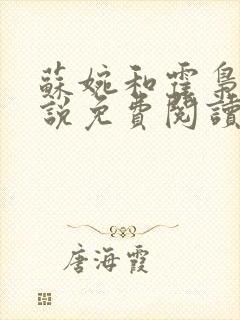 蘇婉和霆梟
說免費閱讀
唐海霞